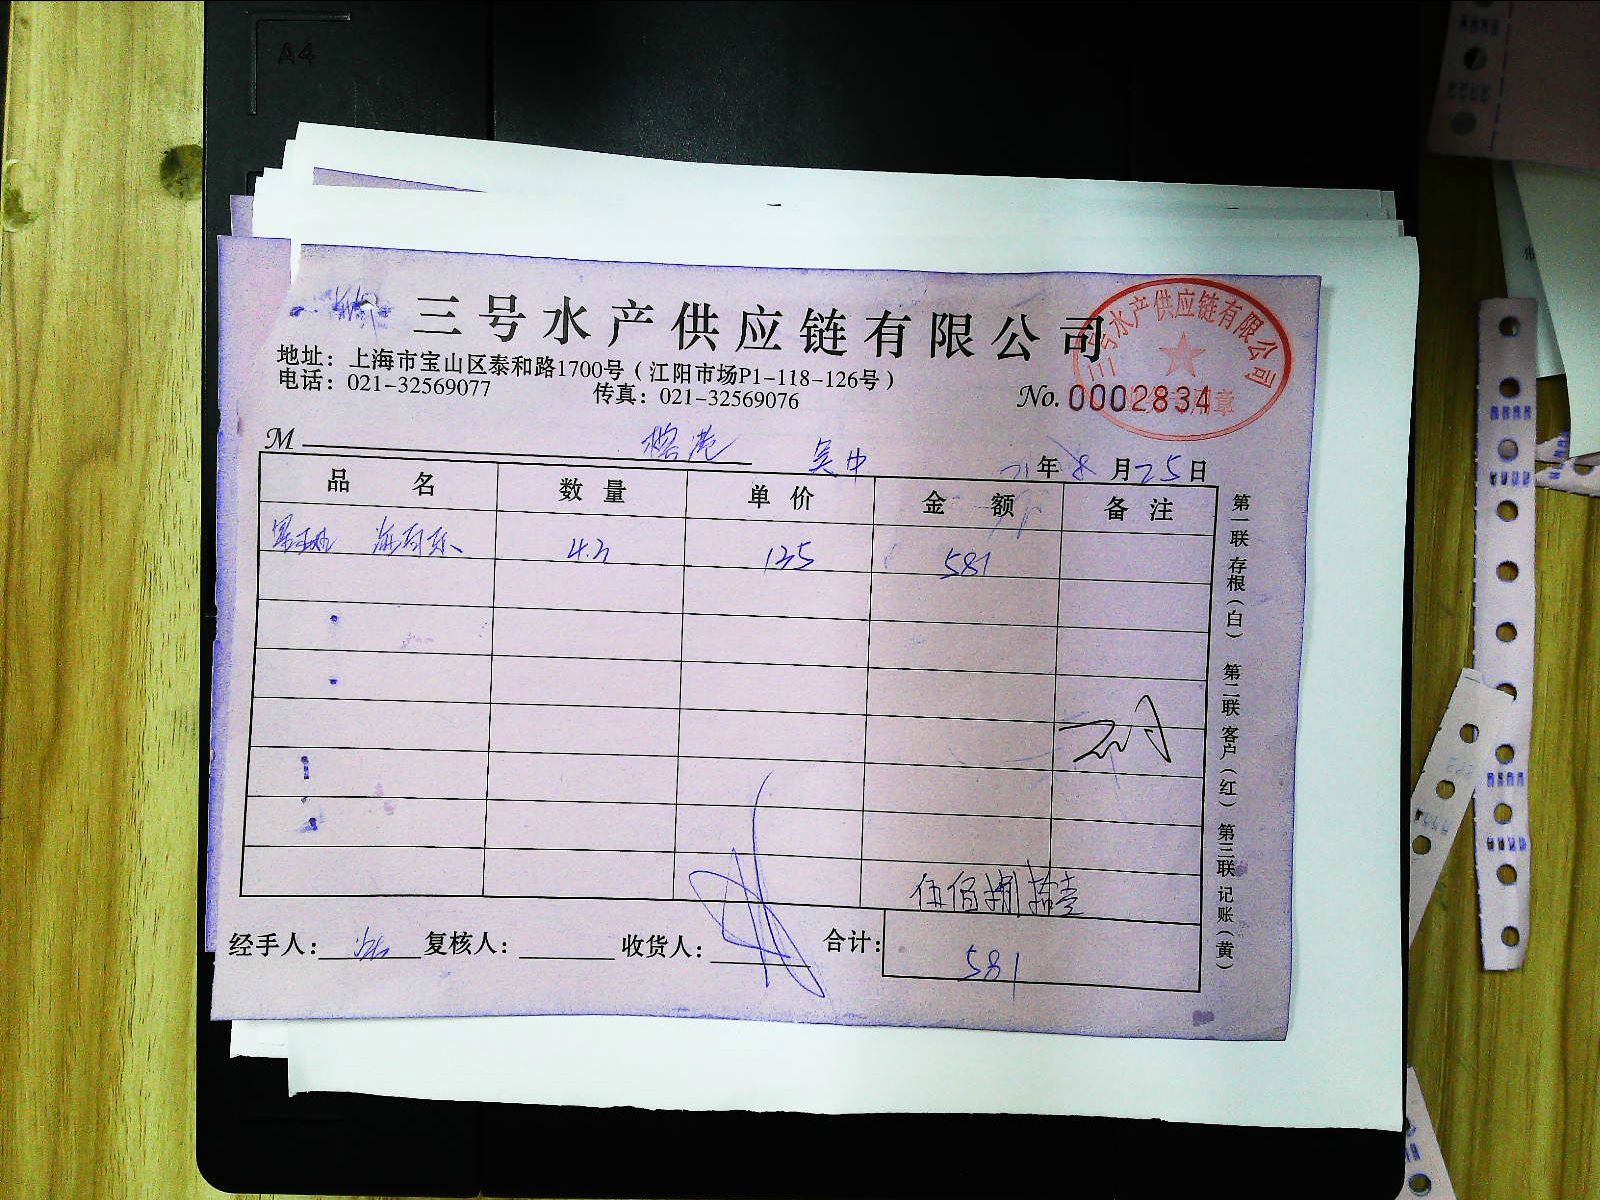 A4
三号水产供应链有限公司
三号水产供应链有限公司
地址：上海市宝山区泰和路1700号（江阳市场P1-118-126号）
电话：021-32569077 传真：021-32569076
No. 0002834
M 榕港 吴中 21年8月25日
品名 数量 单价 金额 备注
4.3 135 581
伍佰捌拾壹
经手人： 复核人： 收货人： 合计：581
第一联 存根（白） 第二联 客户（红） 第三联 记账（黄）